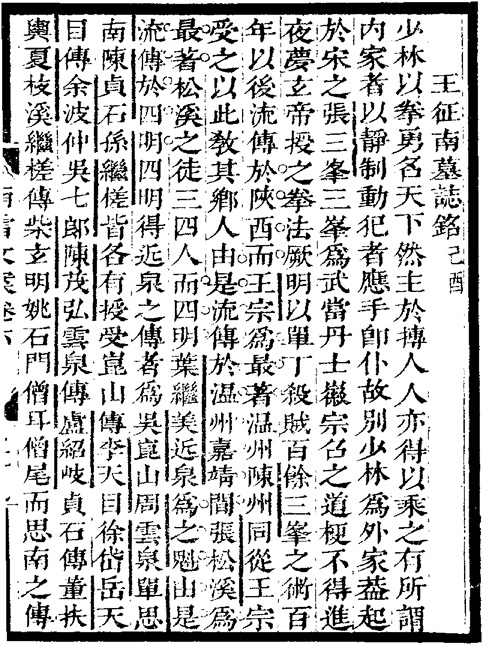 王征南墓誌銘己酉
少林以拳勇名天下然主於搏人人亦得以乘之有所謂
内家者以靜制動犯者應手卽仆故別少林爲外家葢起
於宋之張三峯三峯爲武當丹士徽宗召之道梗不得進
夜夢玄帝授之拳法厥明以單丁殺賊百餘三峯之術百
年以後流傳於陝西而王宗爲最著温州陳州同從王宗
受之以此敎其鄉人由是流傳於温州嘉靖間張松溪爲
最著松溪之徒三四人而四明葉繼美近泉爲之魁由是
流傳於四明四明得近泉之傳者爲吳崑山周雲泉單思
南陳貞石孫繼槎皆各有授受崑山傳李天目徐岱岳天
目傳余波仲吳七郎陳茂弘雲泉傳盧紹岐貞石傳董扶
輿夏枝溪繼槎傳柴玄明姚石門僧耳僧尾而思南之傳
南雷文案卷六